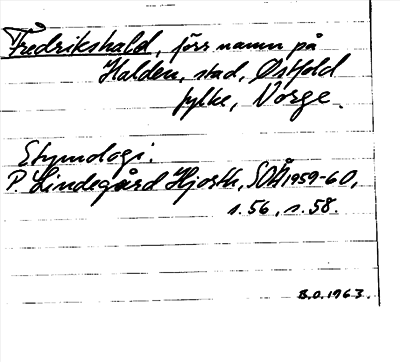 Fredrikshald, förr namn på
Halden, stad, Østfold
fylke, Norge.
Etymologi.
P. Lindegård Hjorth, SOÅ 1959-60,
s. 56, s. 58.
B.O. 1963.